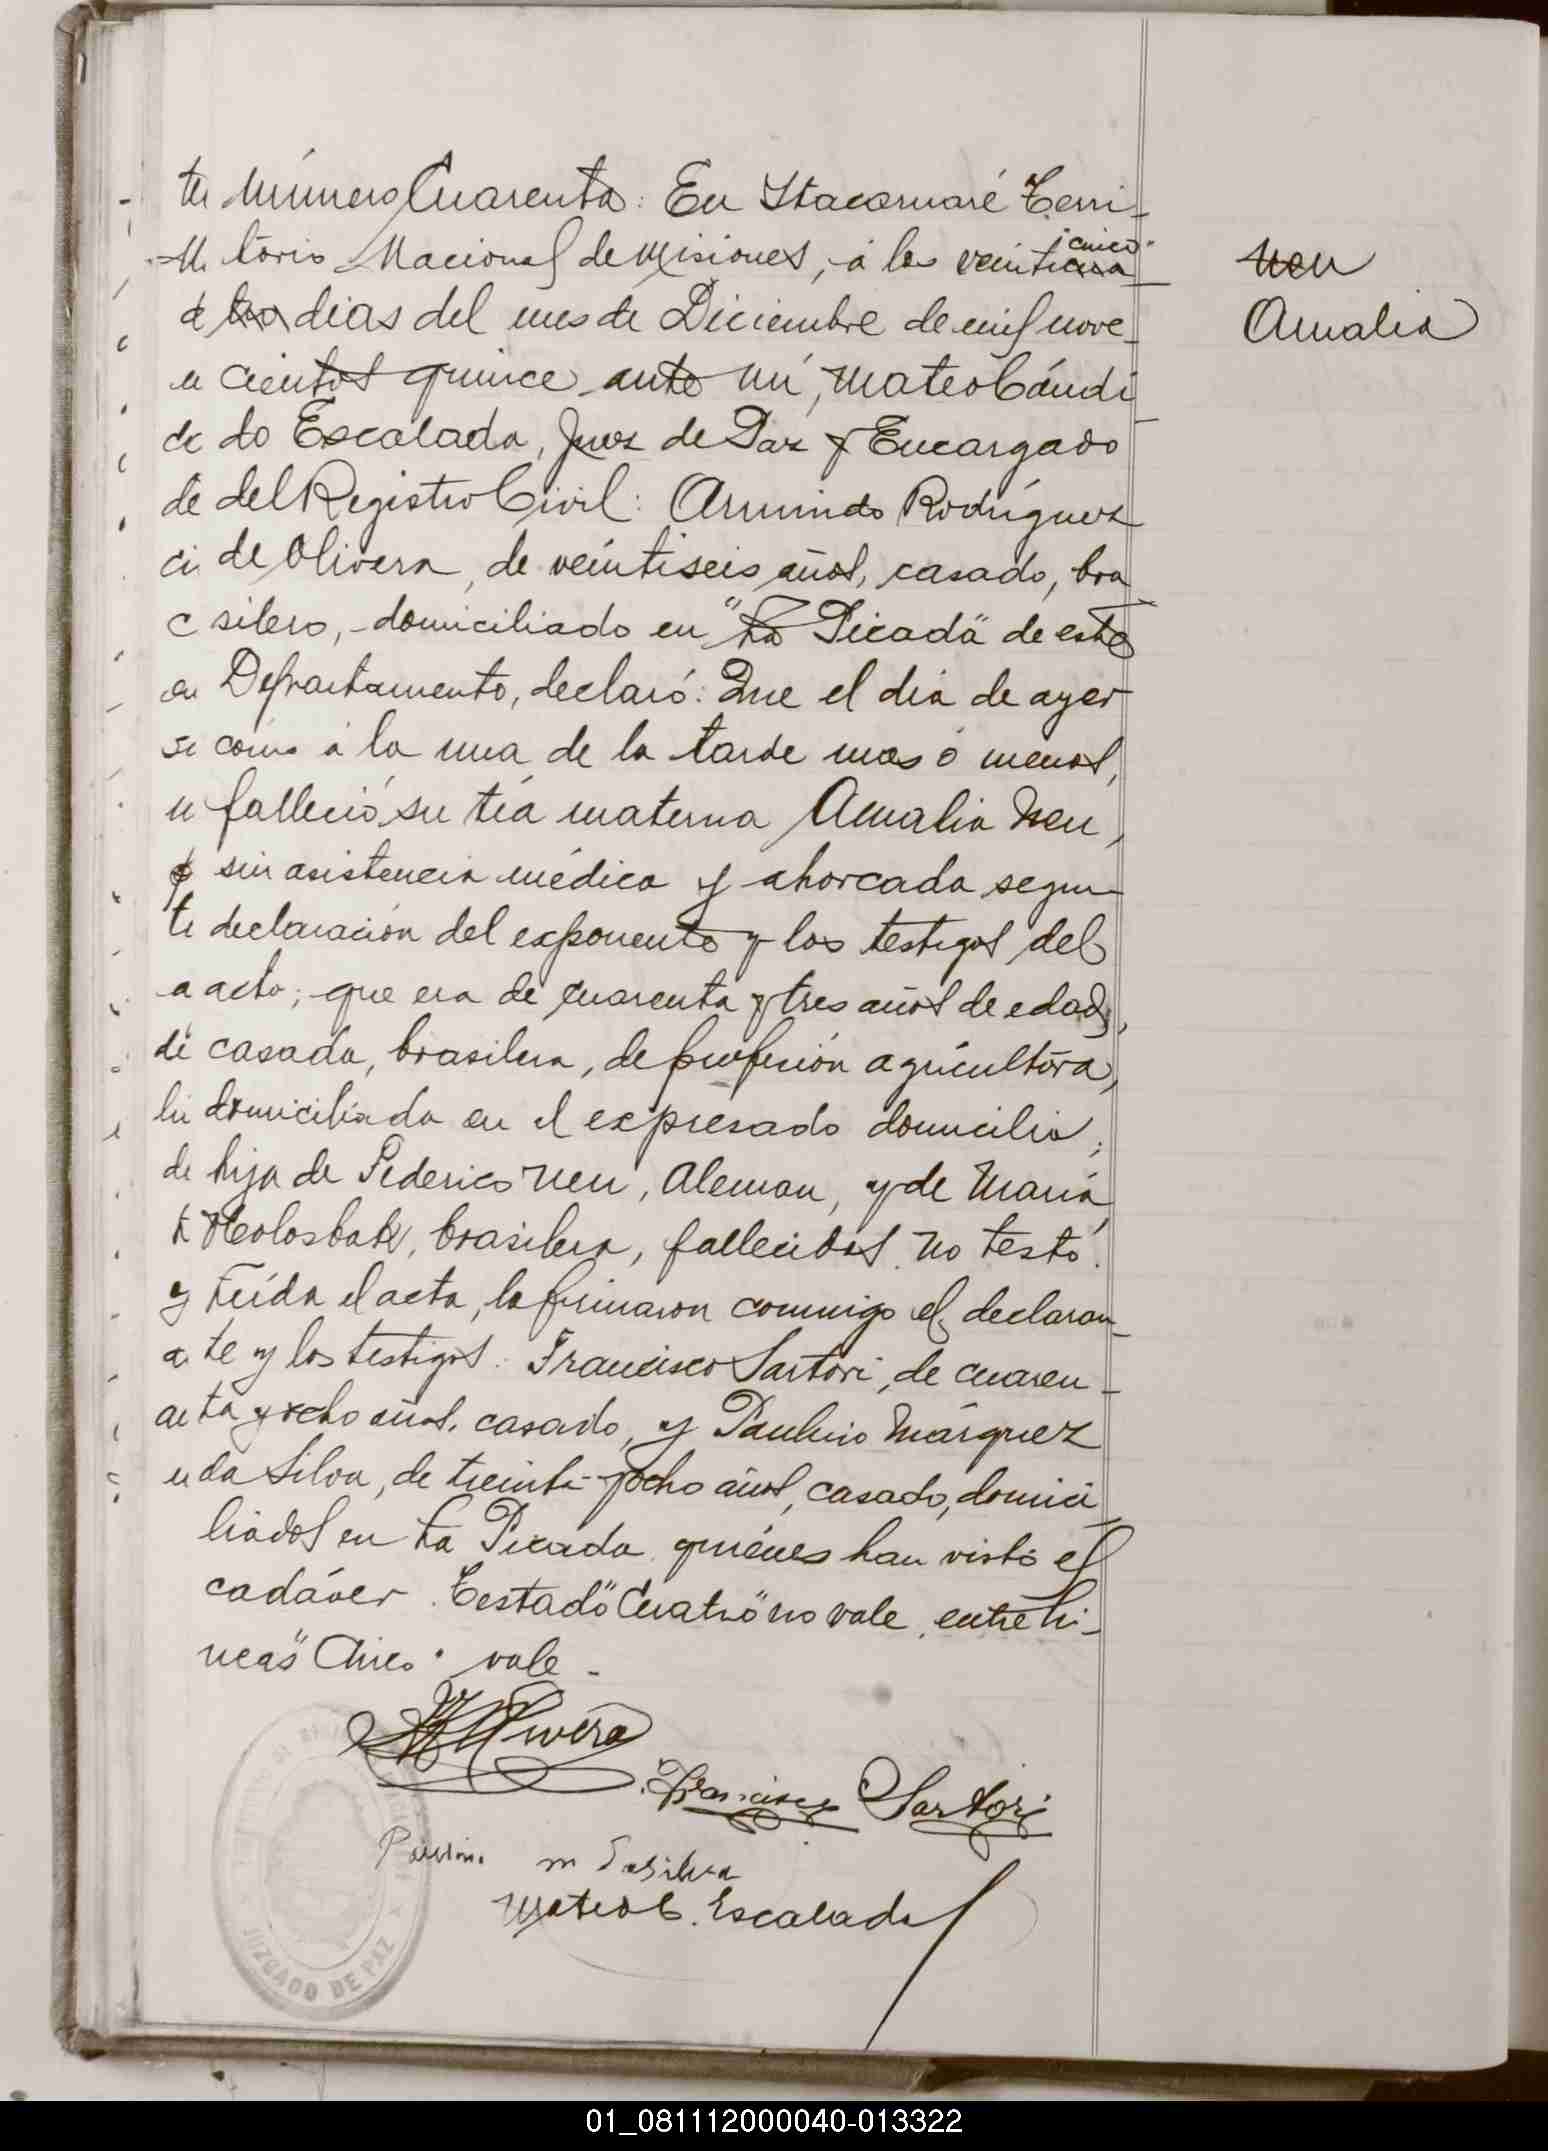 Número Cuarenta: En Itacaruaré Terri-
torio Nacional de Misiones, á los veinticua
cinco
tro dias del mes de Diciembre de mil nove-
cientos quince ante mí, Mateo Cándi-
do Escalada, Juez de Paz y Encargado
del Registro Civil: Armindo Rodríguez
de Olivera, de veintiseis años, casado, bra
silero, domiciliado en "La Picada" de este
Departamento, declaró: Que el dia de ayer
como á la una de la tarde mas ó menos,
falleció su tía materna Amalia Neu,
sin asistencia médica y ahorcada segun
declaración del exponente y los testigos del
acto; que era de cuarenta y tres años de edad,
casada, brasilera, de profesión agricultora,
domiciliada en el expresado domicilio;
hija de Federico Neu, Aleman, y de María
Holosbak, brasilera, fallecidos. No testó.
Leída el acta, la firmaron conmigo el declaran-
te y los testigos: Francisco Sartori, de cuaren-
ta y ocho años, casado, y Paulino Márquez
da Silva, de treinta y ocho años, casado, domici
liados en La Picada quiénes han visto el
cadáver. Testado "Cuatro" no vale, entre li-
neas "Cinco" vale.
Neu
Amalia
Olivera
Francisco Sartori
Paulino m Dasilva
Mateo C. Escalada
JUZGADO DE PAZ
01_081112000040-013322